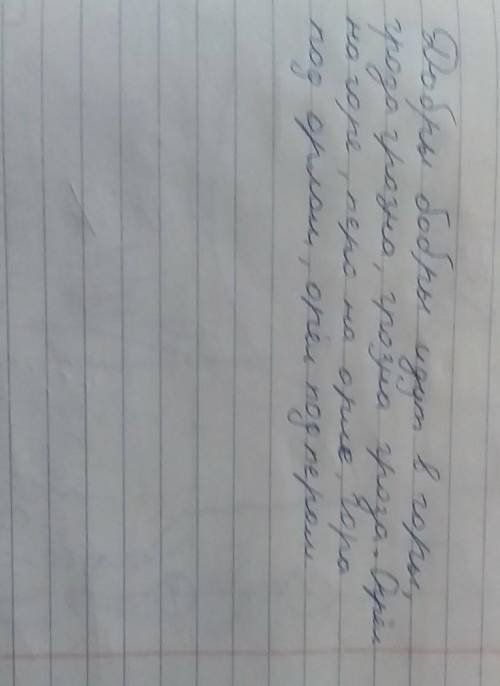 Добры бобры идут в горы,
гроза грозна, грозна гроза. Орёл
на горе, перо на орле, Гора
под орлом, орёл под пером